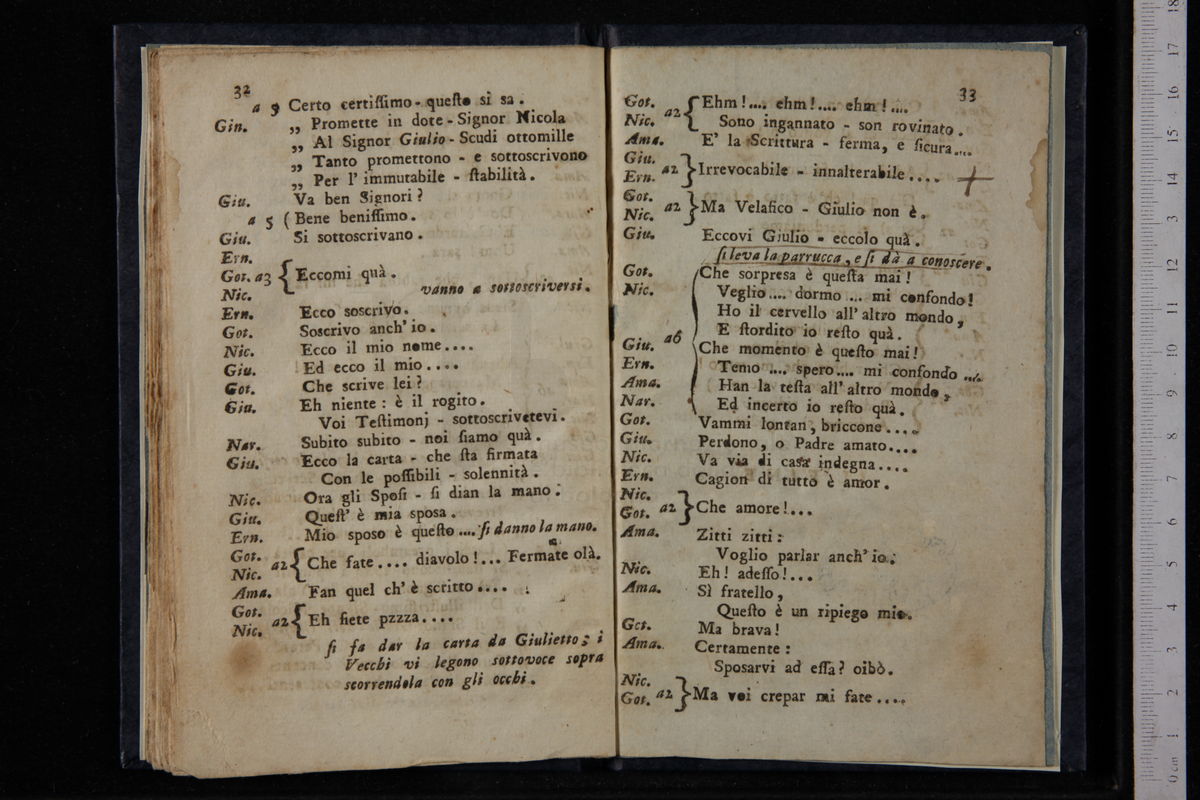 32
a 5 Certo certiſſimo - queſto si sa .
Gin. „ Promette in dote - Signor Nicola
„ Al Signor Giulio - Scudi ottomille
„ Tanto promettono - e sottoscrivono
„ Per l' immutabile - ſtabilità .
Giu. Va ben Signori ?
a 5 ( Bene beniſſimo .
Giu. Si sottoscrivano .
Ern.
Got. a3 { Eccomi quà .
Nic. vanno a sottoscriversi .
Ern. Ecco soscrivo .
Got. Soscrivo anch' io .
Nic. Ecco il mio nome ....
Giu. Ed ecco il mio ....
Got. Che scrive lei ?
Giu. Eh niente : è il rogito .
Voi Teſtimonj - sottoscrivetevi .
Nar. Subito subito - noi ſiamo quà .
Giu. Ecco la carta - che ſta firmata
Con le poſſibili - solennità .
Nic. Ora gli Spoſi - ſi dian la mano :
Giu. Queſt' è mia sposa .
Ern. Mio sposo è queſto .... ſi danno la mano.
Got.
Nic. a2 { Che fate .... diavolo ! ... Fermate olà.
Ama. Fan quel ch' è scritto ....
Got.
Nic. a2 { Eh ſiete pzzza ....
ſi fa dar la carta da Giulietto ; i
Vecchi vi legono sottovoce sopra
scorrendola con gli occhi .
33
Got.
Nic. a2 { Ehm ! .... ehm ! .... ehm ! ....
Sono ingannato - son rovinato .
Ama. E' la Scrittura - ferma, e ſicura ....
Giu.
Ern. a2 } Irrevocabile - innalterabile ....
Got.
Nic. a2 } Ma Velafico - Giulio non è .
Giu. Eccovi Giulio - eccolo quà .
ſi leva la parrucca , e ſi dà a conoscere .
Got. Che sorpresa è queſta mai !
Nic. Veglio .... dormo ... mi confondo !
Ho il cervello all' altro mondo ,
E ſtordito io reſto quà .
Giu. a6 Che momento è queſto mai !
Ern. Temo .... spero .... mi confondo ....
Ama. Han la teſta all' altro mondo ,
Nar. Ed incerto io reſto quà .
Got. Vammi lontan , briccone ....
Giu. Perdono , o Padre amato ....
Nic. Va via di casa indegna ....
Ern. Cagion di tutto è amor .
Nic.
Got. a2 } Che amore ! ...
Ama. Zitti zitti :
Voglio parlar anch' io :
Nic. Eh ! adeſſo ! ...
Ama. Sì fratello ,
Queſto è un ripiego mio .
Got. Ma brava !
Ama. Certamente :
Sposarvi ad eſſa ? oibò .
Nic.
Got. a2 } Ma voi crepar mi fate ....